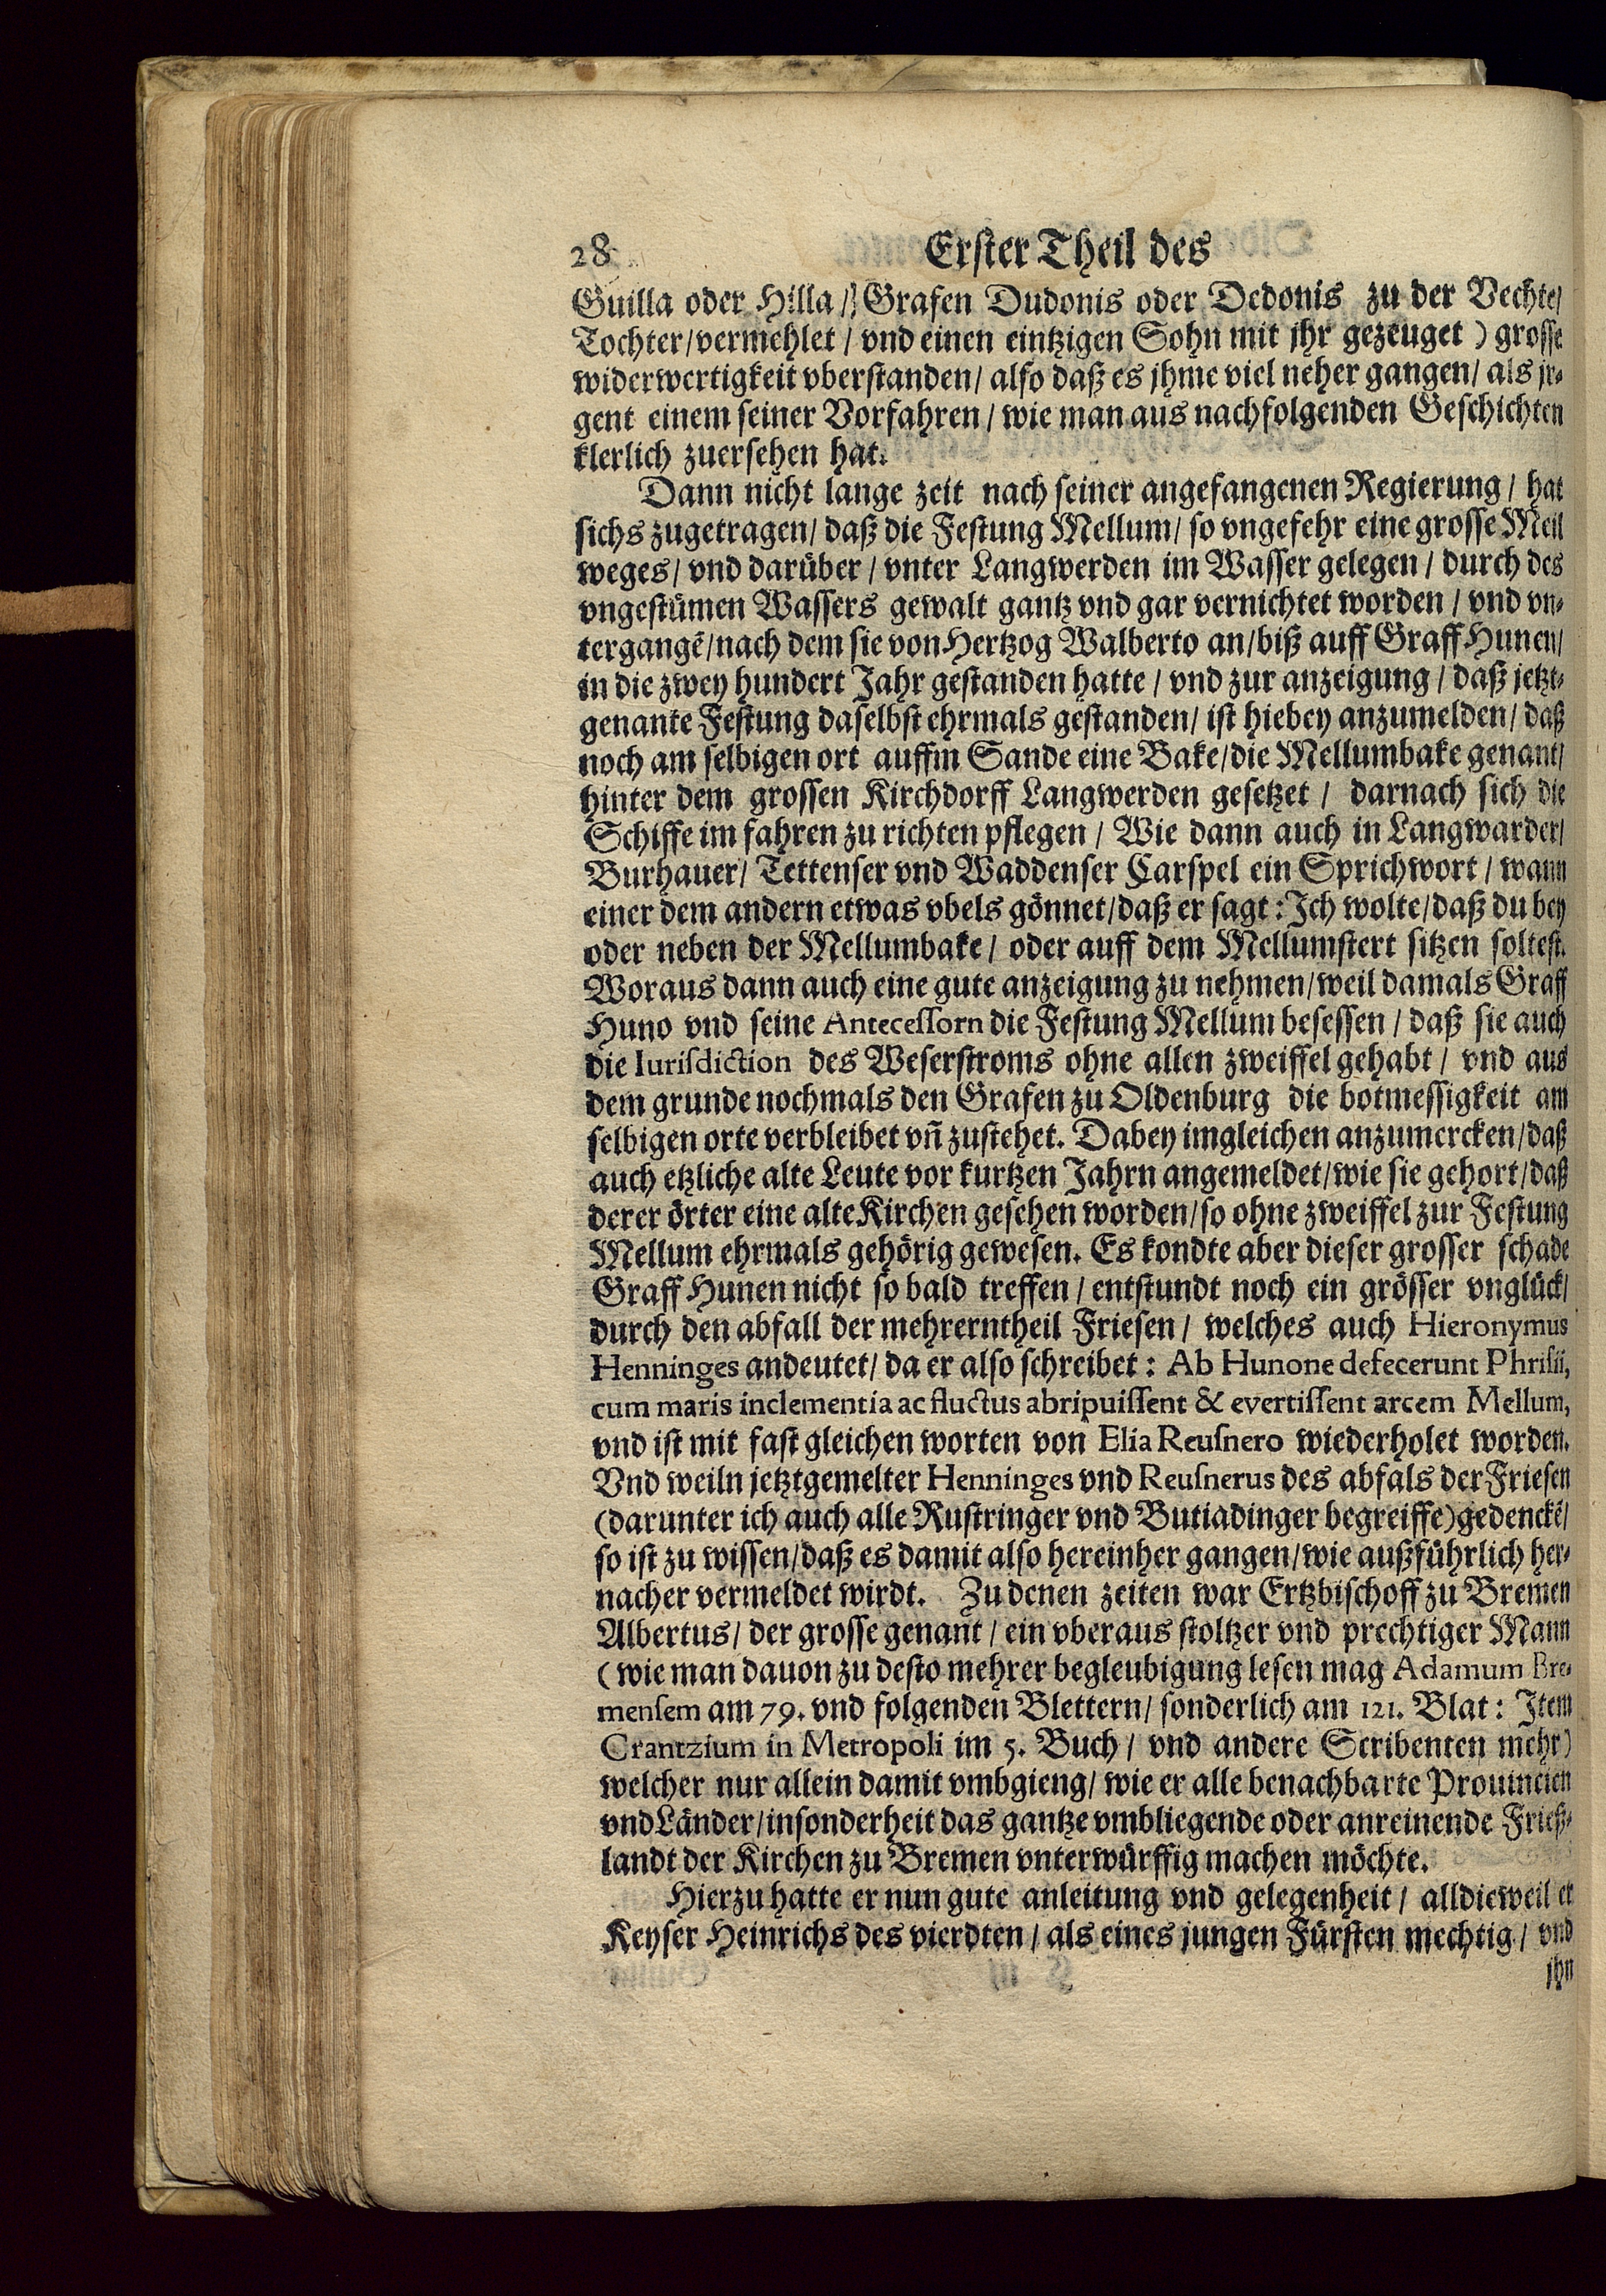 28 Erster Theil des
Guilla oder Hilla / Grafen Dudonis oder Dedonis zu der Vechte/
Tochter/vermehlet / vnd einen eintzigen Sohn mit jhr gezeuget ) grosse
widerwertigkeit vberstanden/ also daß es jhme viel neher gangen/ als jr-
gent einem seiner Vorfahren / wie man aus nachfolgenden Geschichten
klerlich zuersehen hat.
Dann nicht lange zeit nach seiner angefangenen Regierung / hat
sichs zugetragen/ daß die Festung Mellum/ so vngefehr eine grosse Meil
weges/ vnd darüber / vnter Langwerden im Wasser gelegen / durch des
vngestümen Wassers gewalt gantz vnd gar vernichtet worden / vnd vn-
tergangẽ/nach dem sie von Hertzog Walberto an/biß auff Graff Hunen/
in die zwey hundert Jahr gestanden hatte / vnd zur anzeigung / daß jetzt-
genante Festung daselbst ehrmals gestanden/ ist hiebey anzumelden/ daß
noch am selbigen ort auffm Sande eine Bake/die Mellumbake genant/
hinter dem grossen Kirchdorff Langwerden gesetzet / darnach sich die
Schiffe im fahren zu richten pflegen / Wie dann auch in Langwarder/
Burhauer/ Tettenser vnd Waddenser Carspel ein Sprichwort / wann
einer dem andern etwas vbels gönnet/daß er sagt: Ich wolte/daß du bey
oder neben der Mellumbake / oder auff dem Mellumstert sitzen soltest.
Woraus dann auch eine gute anzeigung zu nehmen/weil damals Graff
Huno vnd seine Antecessorn die Festung Mellum besessen / daß sie auch
die Iurisdiction des Weserstroms ohne allen zweiffel gehabt / vnd aus
dem grunde nochmals den Grafen zu Oldenburg die botmessigkeit am
selbigen orte verbleibet vñ zustehet. Dabey imgleichen anzumercken/daß
auch etzliche alte Leute vor kurtzen Jahrn angemeldet/wie sie gehort/daß
derer örter eine alte Kirchen gesehen worden/so ohne zweiffel zur Festung
Mellum ehrmals gehörig gewesen. Es kondte aber dieser grosser schade
Graff Hunen nicht so bald treffen / entstundt noch ein grösser vnglück/
durch den abfall der mehrerntheil Friesen / welches auch Hieronymus
Henninges andeutet/ da er also schreibet : Ab Hunone defecerunt Phrisii,
cum maris inclementia ac fluctus abripuissent & evertissent arcem Mellum,
vnd ist mit fast gleichen worten von Elia Reusnero wiederholet worden.
Vnd weiln jetztgemelter Henninges vnd Reusnerus des abfals der Friesen
(darunter ich auch alle Rustringer vnd Butiadinger begreiffe) gedenckẽ/
so ist zu wissen/daß es damit also hereinher gangen/wie außführlich her-
nacher vermeldet wirdt. Zu denen zeiten war Ertzbischoff zu Bremen
Albertus/ der grosse genant / ein vberaus stoltzer vnd prechtiger Mann
( wie man dauon zu desto mehrer begleubigung lesen mag Adamum Bre-
mensem am 79. vnd folgenden Blettern/ sonderlich am 121. Blat : Item
Crantzium in Metropoli im 5. Buch / vnd andere Scribenten mehr)
welcher nur allein damit vmbgieng/ wie er alle benachbarte Prouincien
vnd Länder/insonderheit das gantze vmbliegende oder anreinende Frieß-
landt der Kirchen zu Bremen vnterwürffig machen möchte.
Hierzu hatte er nun gute anleitung vnd gelegenheit / alldieweil er
Keyser Heinrichs des vierdten / als eines jungen Fürsten mechtig / vnd
jhn